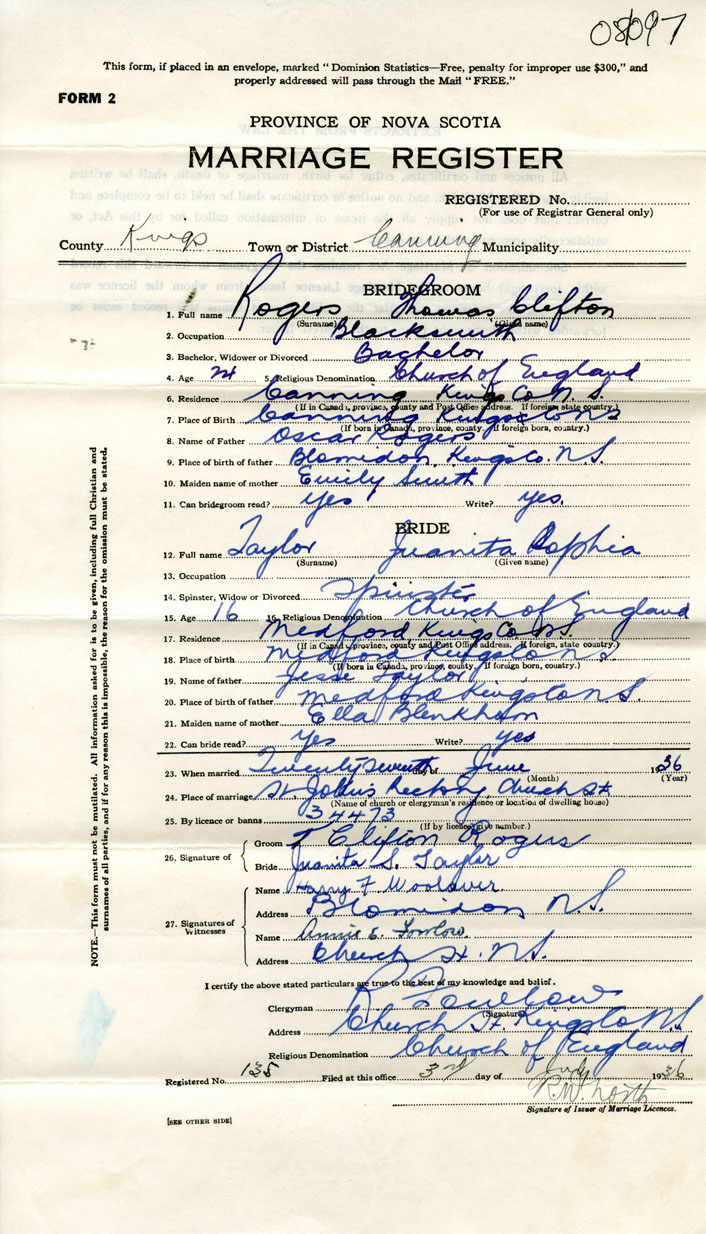 08097
This form, if placed in an envelope, marked "Dominion Statistics—Free, penalty for improper use $300," and
properly addressed will pass through the Mail "FREE."
FORM 2
PROVINCE OF NOVA SCOTIA
MARRIAGE REGISTER
REGISTERED No.
(For use of Registrar General only)
County Kings Town or District Canning Municipality
BRIDEGROOM
1. Full name Rogers Thomas Clifton
(Surname) (Given name)
2. Occupation Blacksmith
3. Bachelor, Widower or Divorced Bachelor
4. Age 24 5. Religious Denomination Church of England
6. Residence Canning Kings Co. N.S.
(If in Canada, province, county and Post Office address. If foreign state country.)
7. Place of Birth Canning Kings Co NS
(If born in Canada, province, county. If foreign born, country.)
8. Name of Father Oscar Rogers
9. Place of birth of father Blomidon, Kings Co. N.S.
10. Maiden name of mother Emily Smith
11. Can bridegroom read? yes Write? yes.
BRIDE
12. Full name Taylor Juanita Sophia
(Surname) (Given name)
13. Occupation
14. Spinster, Widow or Divorced Spinster
15. Age 16 16. Religious Denomination Church of England
17. Residence Medford Kings Co N.S.
(If in Canada, province, county and Post Office address. If foreign, state country.)
18. Place of birth Medford Kings Co N.S.
(If born in Canada, province, county. If foreign born, country.)
19. Name of father Jesse Taylor
20. Place of birth of father Medford Kings Co N.S.
21. Maiden name of mother Ella Blenkhorn
22. Can bride read? Yes Write? yes
23. When married Twenty seventh day of June 1936
(Month) (Year)
24. Place of marriage St John's Rectory Church St
(Name of church or clergyman's residence or location of dwelling house)
25. By licence or banns 34473
(If by licence give number.)
26. Signature of Groom T Clifton Rogers
Bride Juanita S. Taylor
27. Signatures of Witnesses Name Harry F Woolaver
Address Blomidon N.S.
Name Annie E.
Address Church St. N.S.
I certify the above stated particulars are true to the best of my knowledge and belief.
Clergyman R
(Signature)
Address Church St. Kings Co N.S.
Religious Denomination Church of England
Registered No. 135 Filed at this office 3rd day of July 1936
R.W. North
Signature of Issuer of Marriage Licences.
[SEE OTHER SIDE]
NOTE.—This form must not be mutilated. All information asked for is to be given, including full Christian and
surnames of all parties, and if for any reason this is impossible, the reason for the omission must be stated.